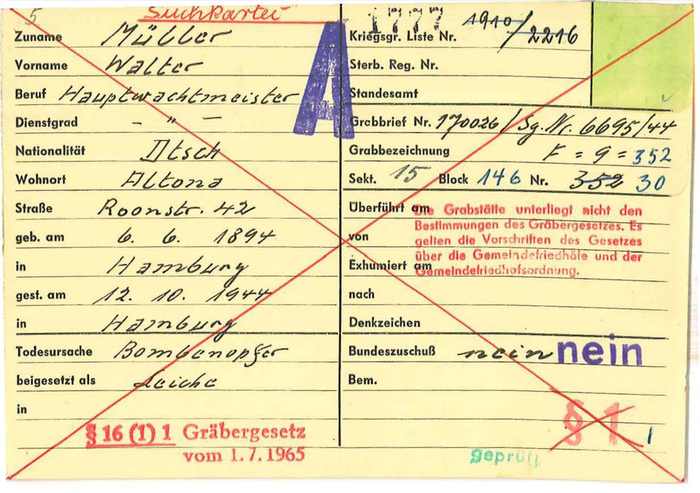 5 Suchkartei
A
1777
1910/2216
Zuname Müller
Vorname Walter
Beruf Hauptwachtmeister
Dienstgrad - " -
Nationalität Dtsch
Wohnort Altona
Straße Roonstr. 42
geb. am 6. 6. 1894
in Hamburg
gest. am 12. 10. 1944
in Hamburg
Todesursache Bombenopfer
beigesetzt als Leiche
in
§ 16 (1) 1 Gräbergesetz
vom 1.7.1965
Kriegsgr. Liste Nr.
Sterb. Reg. Nr.
Standesamt
Grabbrief Nr. 170026/Sg. Nr. 6695/44
Grabbezeichnung F = 9 = 352
Sekt. 15 Block 146 Nr. 352 30
Überführt am
von
Exhumiert am
nach
Die Grabstätte unterliegt nicht den
Bestimmungen des Gräbergesetzes. Es
gelten die Vorschriften des Gesetzes
über die Gemeindefriedhöfe und der
Gemeindefriedhofsordnung.
Denkzeichen
Bundeszuschuß nein nein
Bem.
§ 1 1
geprüft